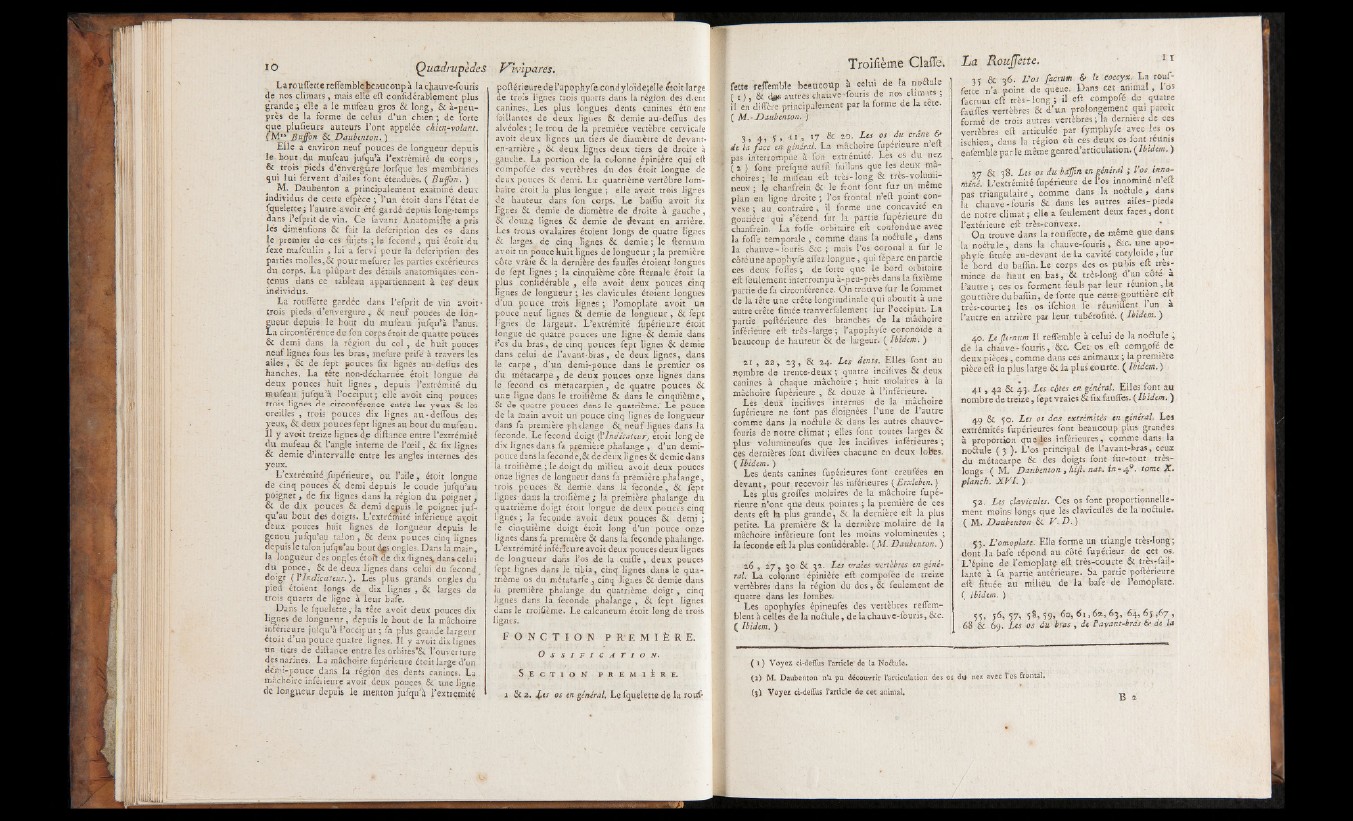 10 Quadrupèdes Vivipares.
La rouſſette reſſemble beaucoup à la chauve-ſouris
de nos climats, mais elle eſt conſidérablement plus
grande ; elle a le muſeau gros & long, & à-peu-
près de la forme de celui d'un chien ; de ſorte
que pluſieurs auteurs l'ont appelée chien-volant.
( Mrs Buffon & Daubenton. )
Elle a environ neuf pouces de longueur depuis
le bout du muſeau juſqu'à l'extrémité du corps,
& trois pieds d'envergure lorſque les membranes
qui lui ſervent d'ailes ſont étendues. ( Buffon. )
M. Daubenton a principalement examiné deux
individus de cette eſpèce ; l'un étoit dans l'état de
ſquelette ; l'autre avoit été gardé depuis long-temps
dans l'eſprit de vin. Ce ſavant Anatomiſte a pris
les dimenſions & fait la deſcription des os dans
le premier de ces ſujets ; le ſecond, qui étoit du
ſexe maſculin, lui a ſervi pour la deſcription des
parties molles, & pour meſurer les parties extérieures
du corps. La plûpart des détails anatomiques con-
tenus dans ce tableau appartiennent à ces deux
individus.
La rouſſette gardée dans l'eſprit de vin avoit
trois pieds d'envergure, & neuf pouces de lon-
gueur depuis le bout du muſeau juſqu'à l'anus.
La circonférence de ſon corps étoit de quatre pouces
& demi dans la région du col, de huit pouces
neuf lignes ſous les bras, meſure priſe à travers les
ailes, & de ſept pouces ſix lignes au-deſſus des
hanches. La tête non-décharnée étoit longue de
deux pouces huit lignes, depuis l'extrémité du
muſeau juſqu'à l'occiput ; elle avoit cinq pouces
trois lignes de circonférence entre les yeux & les
oreilles, trois pouces dix lignes au-deſſous des
yeux, & deux pouces ſept lignes au bout du muſeau.
Il y avoit treize lignes de diſtance entre l'extrémité
du muſeau & l'angle interne de l'œil, & ſix lignes
& demie d'intervalle entre les angles internes des
yeux.
L'extrémité ſupérieure, ou l'aile, étoit longue
de cinq pouces & demi depuis le coude juſqu'au
poignet, de ſix lignes dans la région du poignet,
& de dix pouces & demi depuis le poignet juſ-
qu'au bout des doigts. L'extrémité inférieure avoit
deux pouces huit lignes de longueur depuis le
genou juſqu'au talon, & deux pouces cinq lignes
depuis le talon juſqu'au bout des ongles. Dans la main,
la longueur des ongles étoit de dix lignes dans celui
du pouce, & de deux lignes dans celui du ſecond
doigt ( l'Indicateur. ). Les plus grands ongles du
pied étoient longs de dix lignes, & larges de
trois quarts de ligne à leur baſe.
Dans le ſquelette, la tête avoit deux pouces dix
lignes de longueur, depuis le bout de la mâchoire
inférieure juſqu'à l'occiput ; ſa plus grande largeur
étoit d'un pouce quatre lignes. Il y avoit dix lignes
un tiers de diſtance entre les orbites & l'ouverture
des narines. La mâchoire ſupérieure étoit large d'un
demi-pouce dans la région des dents canines. La
mâchoire inférieure avoit deux pouces & une ligne
de longueur depuis le menton juſqu'à l'extrémité
poſtérieure de l'apophyſe condyloïde ; elle étoit large
de trois lignes trois quarts dans la région des dents
canines. Les plus longues dents canines étoient
ſaillantes de deux lignes & demie au-deſſus des
alvéoles ; le trou de la première vertèbre cervicale
avoit deux lignes un tiers de diamètre de devant-
en-arrière, & deux lignes deux tiers de droite à
gauche. La portion de la colonne épinière qui eſt
compoſée des vertèbres du dos étoit longue de
deux pouces & demi. La quatrième vertèbre lom-
baire étoit la plus longue ; elle avoit trois lignes
de hauteur dans ſon corps. Le baſſin avoit ſix
lignes & demie de diamètre de droite à gauche,
& douze lignes & demie de devant en arrière.
Les trous ovalaires étoient longs de quatre lignes
& larges de cinq lignes & demie ; le ſternum
avoit un pouce huit lignes de longueur ; la première
côte vraie & la dernière des fauſſes étoient longues
de ſept lignes ; la cinquième côte ſternale étoit la
plus conſidérable, elle avoit deux pouces cinq
lignes de longueur ; les clavicules étoient longues
d'un pouce trois lignes ; l'omoplate avoit un
pouce neuf lignes & demie de longueur, & ſept
lignes de largeur. L'extrémité ſupérieure étoit
longue de quatre pouces une ligne & demie dans
l'os du bras, de cinq pouces ſept lignes & demie
dans celui de l'avant-bras, de deux lignes, dans
le carpe, d'un demi-pouce dans le premier os
du métacarpe, de deux pouces onze lignes dans
le ſecond os métacarpien, de quatre pouces &
une ligne dans le troiſième & dans le cinquième,
& de quatre pouces dans le quatrième. Le pouce
de la main avoit un pouce cinq lignes de longueur
dans ſa première phalange & neuf lignes dans la
ſeconde. Le ſecond doigt (l'Indicateur, étoit long de
dix lignes dans ſa première phalange, d'un demi-
pouce dans la ſeconde, & de deux lignes & demie dans
la troiſième ; le doigt du milieu avoit deux pouces
onze lignes de longueur dans ſa première phalange,
trois pouces & demie dans la ſeconde, & ſept
lignes dans la troiſième ; la première phalange du
quatrième doigt étoit longue de deux pouces cinq
lignes ; la ſeconde avoit deux pouces & demi ;
le cinquième doigt étoit long d'un pouce onze
lignes dans ſa première & dans la ſeconde phalange.
L'extrémité inférieure avoit deux pouces deux lignes
de longueur dans l'os de la cuiſſe, deux pouces
ſept lignes dans le tibia, cinq lignes dans le qua-
trième os du métatarſe, cinq lignes & demie dans
la première phalange du quatrième doigt, cinq
lignes dans la ſeconde phalange, & ſept lignes
dans le troiſième. Le calcaneum étoit long de trois
lignes.
FONCTION PREMIÈRE.
OSSIFICATION.
SECTION PREMIÈRE.
1 & 2. Les os en général. Le ſquelette de la rouſ-
Troiſième Claſſe. La Rouſſette. 11
ſette reſſemble beaucoup à celui de la noctule
( 1 ), & des autres chauve-ſouris de nos climats ;
il en diffère principalement par la forme de la tête.
( M. Daubenton. )
3, 4, 5, 11, 17 & 20. Les os du crâne &
de la face en général. La mâchoire ſupérieure n'eſt
pas interrompue à ſon extrémité. Les os du nez
( 2 ) ſont preſque auſſi ſaillans que les deux mâ-
choires ; le muſeau eſt très-long & très-volumi-
neux ; le chanfrein & le front ſont ſur un même
plan en ligne droite ; l'os frontal n'eſt point con-
vexe ; au contraire, il forme une concavité en
goutière qui s'étend ſur la partie ſupérieure du
chanfrein. La foſſe orbitaire eſt confondue avec
la foſſe temporale, comme dans la noctule, dans
la chauve-ſouris &c ; mais l'os coronal a ſur le
côté une apophyſe aſſez longue, qui ſépare en partie
ces deux foſſes ; de ſorte que le bord orbitaire
eſt ſeulement interrompu à-peu-près dans la ſixième
partie de ſa circonférence. On trouve ſur le ſommet
de la tête une crête longitudinale qui aboutit à une
autre crête ſituée tranverſalement ſur l'occiput. La
partie poſtérieure des branches de la mâchoire
inférieure eſt très-large ; l'apophyſe coronoïde a
beaucoup de hauteur & de largeur. ( Ibidem. )
21, 22, 23, & 24. Les dents. Elles ſont au
nombre de trente-deux ; quatre inciſives & deux
canines à chaque mâchoire ; huit molaires à la
mâchoire ſupérieure, & douze à l'inférieure.
Les deux inciſives internes de la mâchoire
ſupérieure ne ſont pas éloignées l'une de l'autre
comme dans la noctule & dans les autres chauve-
ſouris de notre climat ; elles ſont toutes larges &
plus volumineuſes que les inciſives inférieures ;
ces dernières ſont diviſées chacune en deux lobes.
( Ibidem. )
Les dents canines ſupérieures ſont creuſées en
devant, pour recevoir les inférieures ( Erxleben. )
Les plus groſſes molaires de la mâchoire ſupé-
rieure n'ont que deux pointes ; la première de ces
dents eſt la plus grande, & la dernière eſt la plus
petite. La première & la dernière molaire de la
mâchoire inférieure ſont les moins volumineuſes ;
la ſeconde eſt la plus conſidérable. ( M. Daubenton. )
26, 27, 30 & 32. Les vraies vertèbres en géné-
ral. La colonne épinière eſt compoſée de treize
vertèbres dans la région du dos, & ſeulement de
quatre dans les lombes.
Les apophyſes épineuſes des vertèbres reſſem-
blent à celles de la noctule, de la chauve-ſouris, &c.
( Ibidem. )
35 & 36. L'os ſacrum & le coccyx. La rouſ-
ſette n'a point de queue. Dans cet animal, l'os
ſacrum eſt très-long ; il eſt compoſé de quatre
fauſſes vertèbres & d'un prolongement qui paroît
formé de trois autres vertèbres ; la dernière de ces
vertèbres eſt articulée par ſymphyſe avec les os
iſchion, dans la région où ces deux os ſont réunis
enſemble par le même genre d'articulation. ( Ibidem. )
37 & 38. Les os du baſſin en général ; l'os inno-
miné. L'extrémité ſupérieure de l'os innominé n'eſt
pas triangulaire, comme dans la noctule, dans
la chauve-ſouris & dans les autres ailes-pieds
de notre climat ; elle a ſeulement deux faces, dont
l'extérieure eſt très-convexe.
On trouve dans la rouſſette, de même que dans
la noctule, dans la chauve-ſouris, &c. une apo-
phyſe ſituée au-devant de la cavité cotyloïde, ſur
le bord du baſſin. Le corps des os pubis eſt très-
mince de haut en bas, & très-long d'un côté à
l'autre ; ces os forment ſeuls par leur réunion, la
gouttière du baſſin, de ſorte que cette gouttière eſt
très-courte ; les os iſchion ſe réuniſſent l'un à
l'autre en arrière par leur tubéroſité. ( Ibidem. )
40. Le ſternum. Il reſſemble à celui de la noctule,
de la chauve-ſouris, &c. Cet os eſt compoſé de
deux pièces, comme dans ces animaux ; la première
pièce eſt la plus large & la plus courte. ( Ibidem. )
41, 42 & 43. Les côtes en général. Elles ſont au
nombre de treize, ſept vraies & ſix fauſſes. ( Ibidem. )
49 & 50. Les os des extrémités en général. Les
extrémités ſupérieures ſont beaucoup plus grandes
à proportion que les inférieures, comme dans la
noctule ( 3 ). L'os principal de l'avant-bras, ceux
du métacarpe & des doigts ſont ſur-tout très-
longs ( M. Daubenton, hiſt. nat. in-4°. tome X.
planch. XVI. )
52. Les clavicules. Ces os ſont proportionnelle-
ment moins longs que les clavicules de la noctule.
( M. Daubenton & V. D. )
53. L'omoplate. Elle forme un triangle très-long ;
dont la baſe répond au côté ſupérieur de cet os.
L'épine de l'omoplate eſt très-courte & très-ſail-
lante à ſa partie antérieure. Sa partie poſtérieure
eſt ſituée au milieu de la baſe de l'omoplate.
( Ibidem. )
55, 56, 57, 58, 59, 60, 61, 62, 63, 64, 65, 67,
68 & 69. Les os du bras, de l'avant-bras & de la
( 1 ) Voyez ci-deſſus l'article de la Noctule.
(2) M. Daubenton n'a pu découvrir l'articulation des os du nez avec l'os frontal.
(3) Voyez ci-deſſus l'article de cet animal.
B 2